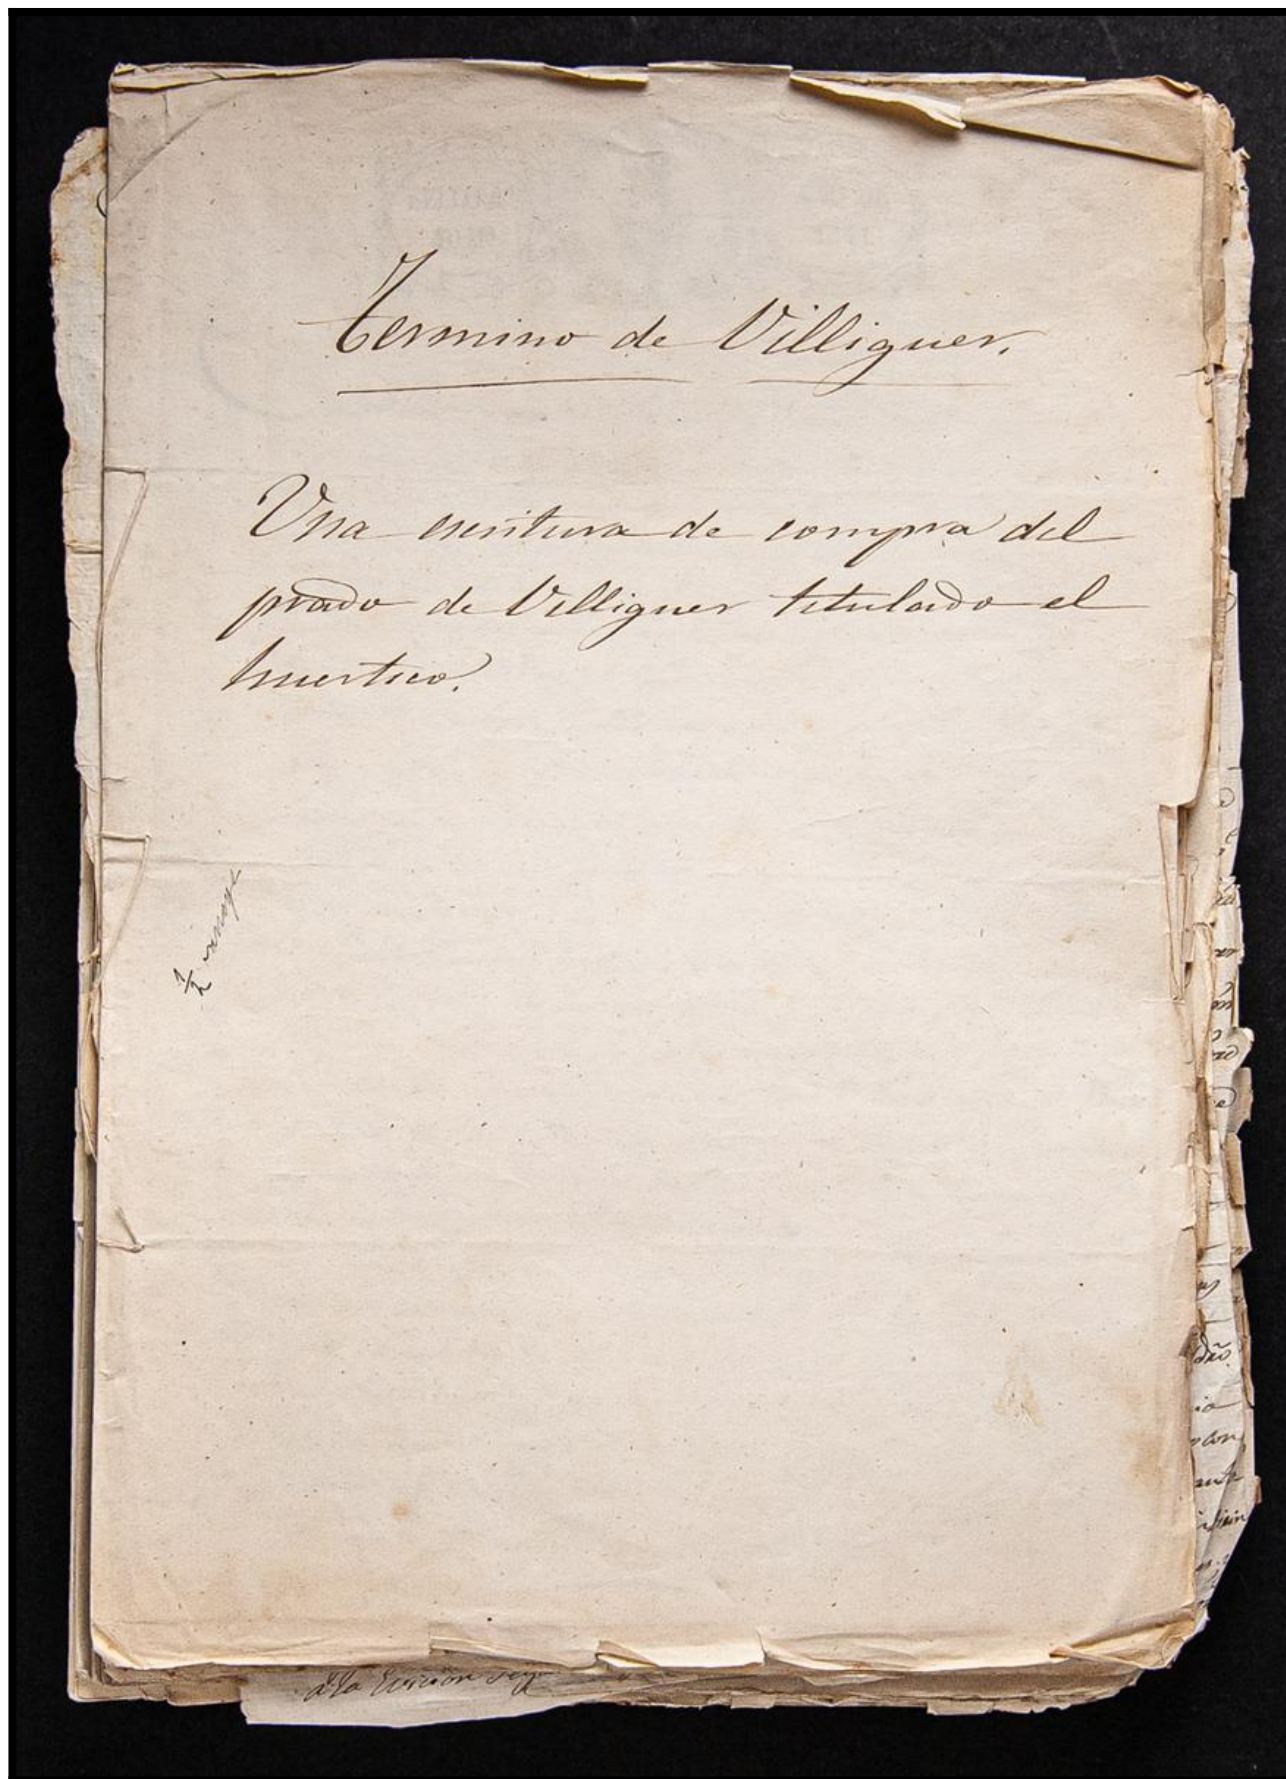 Termino de Villiguer.
Una escritura de compra del
prado de Villiguer titulado el
huertico.
1/2
a la Evicion